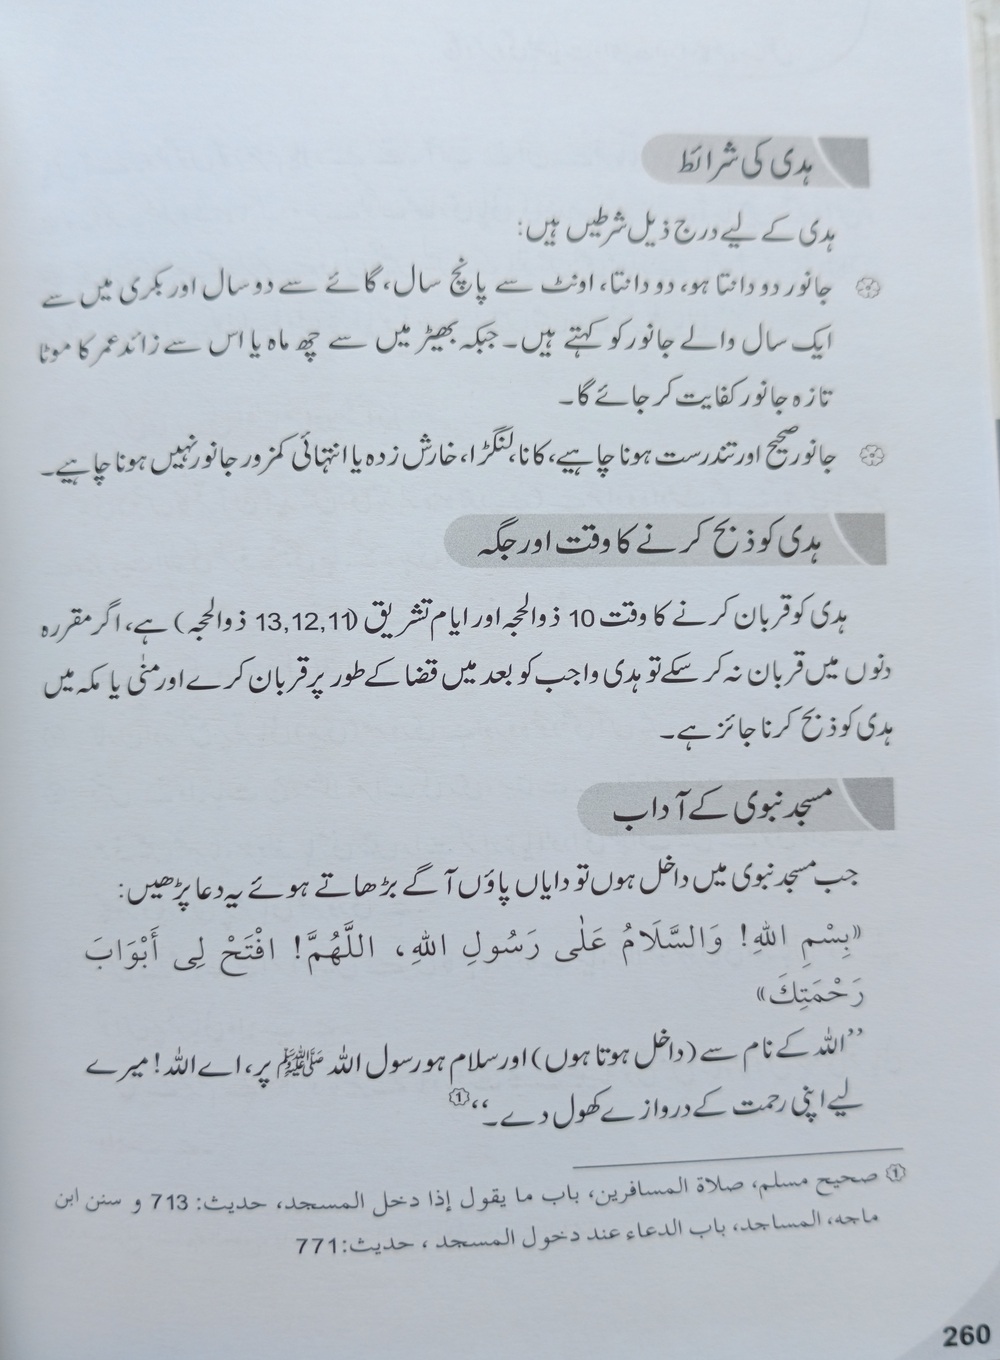 ہدی کی شرائط
ہدی کے لیے درج ذیل شرطیں ہیں:
جانور دو دانتا ہو، دو دانتا، اونٹ سے پانچ سال، گائے سے دو سال اور بکری میں سے
ایک سال والے جانور کو کہتے ہیں۔ جبکہ بھیڑ میں سے چھ ماہ یا اس سے زائد عمر کا موٹا
تازہ جانور کفایت کر جائے گا۔
جانور صحیح اور تندرست ہونا چاہیے، کانا، لنگڑا، خارش زدہ یا انتہائی کمزور جانور نہیں ہونا چاہیے۔
ہدی کو ذبح کرنے کا وقت اور جگہ
ہدی کو قربان کرنے کا وقت 10 ذوالحجہ اور ایام تشریق (11,12,13 ذوالحجہ) ہے، اگر مقررہ
دنوں میں قربان نہ کر سکے تو ہدی واجب کو بعد میں قضا کے طور پر قربان کرے اور منٰی یا مکہ میں
ہدی کو ذبح کرنا جائز ہے۔
مسجد نبوی کے آداب
جب مسجد نبوی میں داخل ہوں تو دایاں پاؤں آگے بڑھاتے ہوئے یہ دعا پڑھیں:
«بِسْمِ اللّٰهِ! وَالسَّلَامُ عَلٰى رَسُولِ اللّٰهِ، اللَّهُمَّ! افْتَحْ لِي أَبْوَابَ
رَحْمَتِكَ»
”اللہ کے نام سے (داخل ہوتا ہوں) اور سلام ہو رسول اللہ ﷺ پر، اے اللہ! میرے
لیے اپنی رحمت کے دروازے کھول دے۔“①
① صحیح مسلم، صلاة المسافرین، باب ما یقول إذا دخل المسجد، حدیث: 713 و سنن ابن
ماجه، المساجد، باب الدعاء عند دخول المسجد ، حدیث: 771
260